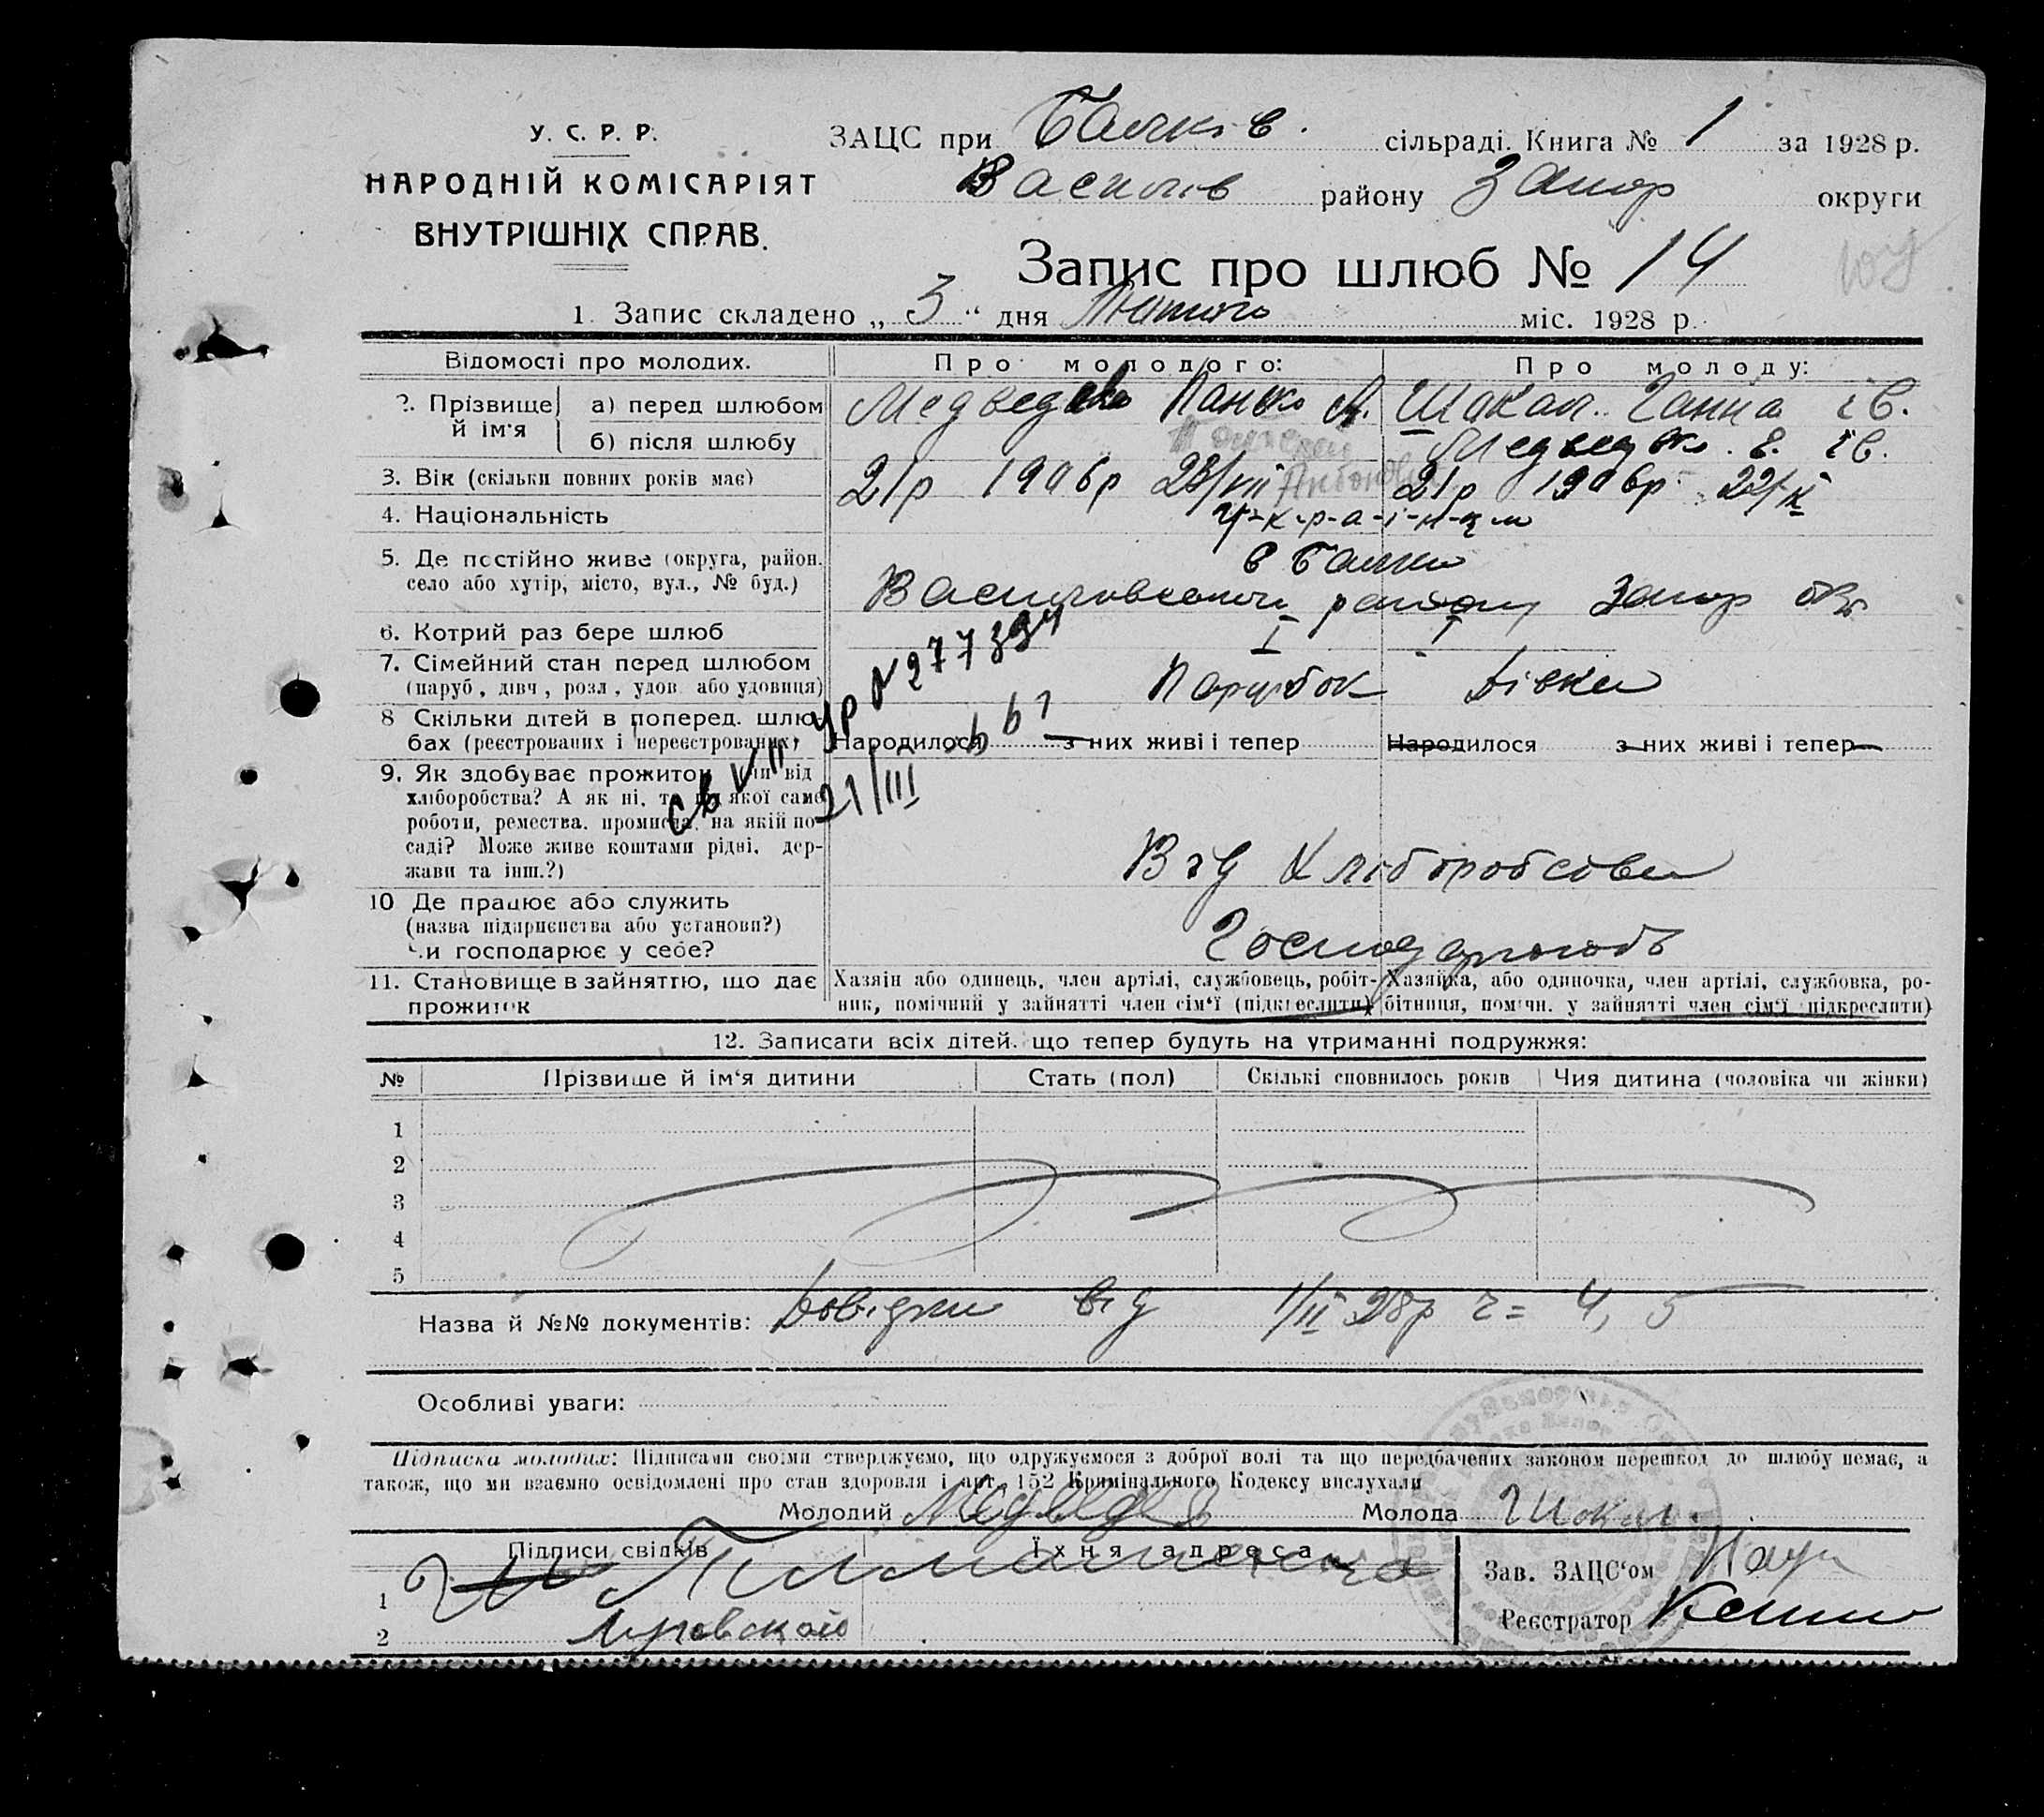 У. С. Р. Р.
НАРОДНІЙ КОМІСАРІЯТ
ВНУТРІШНІХ СПРАВ.
ЗАЦС при Балків. сільраді. Книга № 1 за 1928 р.
Василів району Запор округи
Запис про шлюб № 14
1. Запис складено „ 3 “ дня Лютого міс. 1928 р.
Відомості про молодих.
Про молодого:
Про молоду:
2. Прізвище й ім'я
а) перед шлюбом
Медведєв Панько А.
Шокал. Ганна Ів.
б) після шлюбу
Медведєва. Ів.
3. Вік (скільки повних років має)
21р 1906р 23/VII
21р 1906р 22/IX
4. Національність
У-к-р-а-ї-н-ц-і
5. Де постійно живе (округа, район. село або хутір, місто, вул., № буд.)
с Балки
Василівського району Запор окр
6. Котрий раз бере шлюб
I I
7. Сімейний стан перед шлюбом
(паруб, дівч, розл, удов. або удовиця)
Парубок Дівка
8 Скільки дітей в поперед. шлю-
бах (реєстрованих і нереєстрованих)
Народилося з них живі і тепер
Народилося з них живі і тепер
№ 277394
21/III
9. Як здобуває прожиток чи від
хліборобства? А як ні, то від якої саме
роботи, ремества. промисла, на якій по-
саді? Може живе коштами рідні, дер-
жави та інш.?)
Від Хліборобства
10 Де працює або служить
(назва підприємства або установи?)
Чи господарює у себе?
Господарюють
11. Становище в зайняттю, що дає
прожиток
Хазяїн або одинець, член артілі, службовець, робіт-
ник, помічний у зайнятті член сім‘ї (підкреслити)
Хазяйка, або одиночка, член артілі, службовка, ро-
бітниця, помічн. у зайнятті член сім‘ї підкреслити)
12. Записати всіх дітей. що тепер будуть на утриманні подружжя:
№ Прізвише й ім‘я дитини Стать (пол) Скількі сповнилось років Чия дитина (чоловіка чи жінки)
1
2
3
4
5
Назва й №№ документів: Довідки від 1/II 28р Ч= 4, 5
Особливі уваги:
Підписка молодих: Підписами своїми стверджуємо, що одружуємося з доброї волі та що передбачених законом перешкод до шлюбу немає, а
також, що ми взаємно освідомлені про стан здоровля і арт. 152 Кримінального Кодексу вислухали
Молодий Медведєв Молода Шокал.
Підписи свідків Їхня адреса
1
2
Зав. ЗАЦС‘ом
Реєстратор